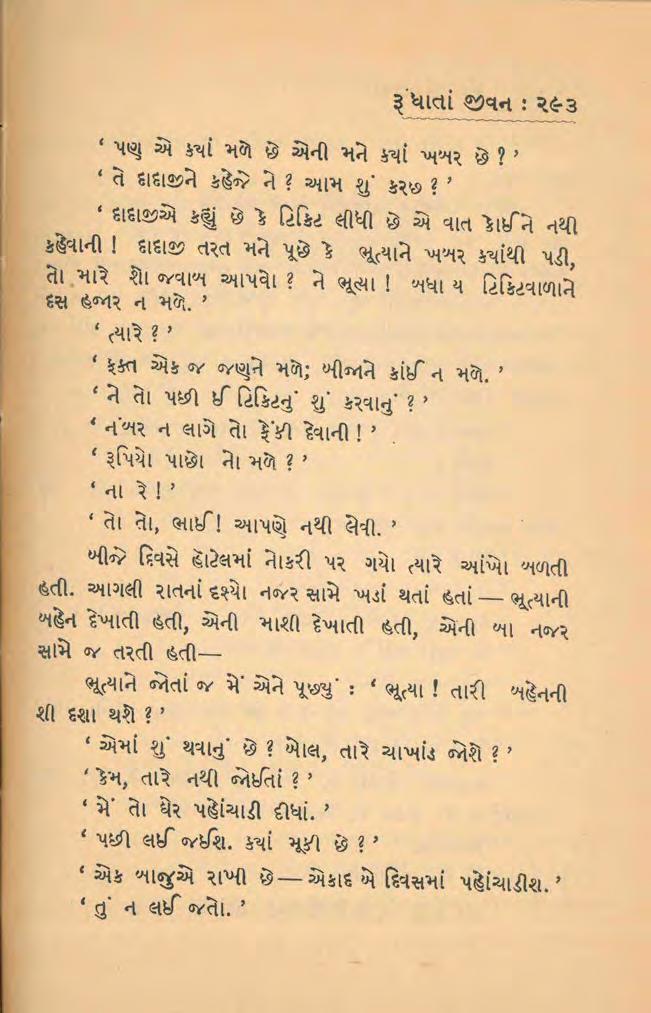 રૂંધાતાં જીવન : ૨૯૩
‘ પણ એ ક્યાં મળે છે એની મને ક્યાં ખબર છે ? ’
‘ તે દાદાજીને કહેજે ને ? આમ શું કરછ ? ’
‘ દાદાજીએ કહ્યું છે કે ટિકિટ લીધી છે એ વાત કોઈને નથી
કહેવાની ! દાદાજી તરત મને પૂછે કે ભૂત્યાને ખબર ક્યાંથી પડી,
તો મારે શો જવાબ આપવો ? ને ભૂત્યા ! બધા ય ટિકિટવાળાને
દસ હજાર ન મળે. ’
‘ ત્યારે ? ’
‘ ફક્ત એક જ જણને મળે; બીજાને કાંઈ ન મળે. ’
‘ ને તો પછી ઈ ટિકિટનું શું કરવાનું ? ’
‘ નંબર ન લાગે તો ફેંકી દેવાની ! ’
‘ રૂપિયો પાછો નો મળે ? ’
‘ ના રે ! ’
‘ તો તો, ભાઈ ! આપણે નથી લેવી. ’
બીજે દિવસે હૉટેલમાં નોકરી પર ગયો ત્યારે આંખો બળતી
હતી. આગલી રાતનાં દશ્યો નજર સામે ખડાં થતાં હતાં — ભૂત્યાની
બહેન દેખાતી હતી, એની માશી દેખાતી હતી, એની બા નજર
સામે જ તરતી હતી—
ભૂત્યાને જોતાં જ મેં એને પૂછ્યું : ‘ ભૂત્યા ! તારી બહેનની
શી દશા થશે ? ’
‘ એમાં શું થવાનું છે ? બોલ, તારે ચાખાંડ જોશે ? ’
‘ કેમ, તારે નથી જોઈતાં ? ’
‘ મેં તો ઘેર પહોંચાડી દીધાં. ’
‘ પછી લઈ જઈશ. ક્યાં મૂકી છે ? ’
‘ એક બાજુએ રાખી છે — એકાદ બે દિવસમાં પહોંચાડીશ. ’
‘ તું ન લઈ જતો. ’